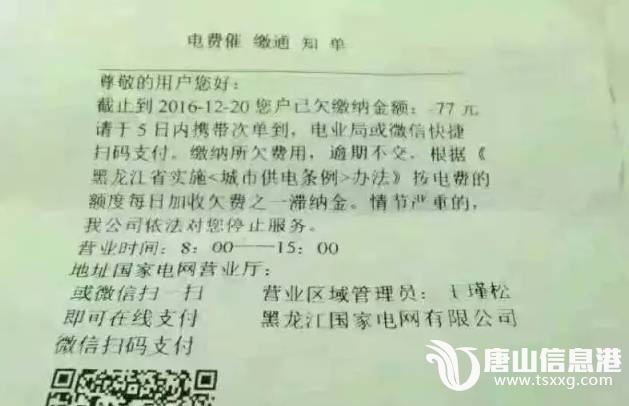 电费催 缴通 知 单
尊敬的用户您好：
截止到 2016-12-20 您户已欠缴纳金额：-77 元
请于 5 日内携带次单到，电业局或微信快捷
扫码支付。缴纳所欠费用，逾期不交，根据《
黑龙江省实施<城市供电条例>办法》按电费的
额度每日加收欠费之一滞纳金。情节严重的，
我公司依法对您停止服务。
营业时间：8：00——15：00
地址国家电网营业厅：
或微信扫一扫 营业区域管理员：王瑾松
即可在线支付 黑龙江国家电网有限公司
微信扫码支付
唐山信息港
www.tsxxg.com